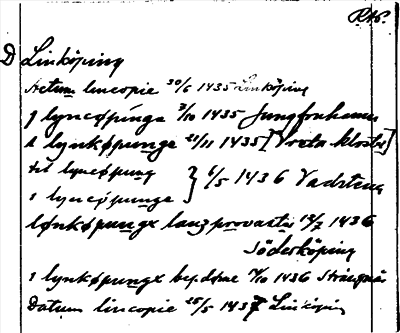 RAp.
D Linköping
Actum lincopie 30/6 1435 Linköping
J lyncøpinga 3/10 1435 Jungfruhamn
i lynkøpunge 21/11 1435 [Vreta kloster]
til lyncøpung } 6/5 1436 Vadstena
i lyncøpunge
lønkøpungx lanzprovasti 19/7 1436
Söderköping
i lynkøpungx 1436 Strängnäs
Datum lincopie 25/5 1437 Linköping